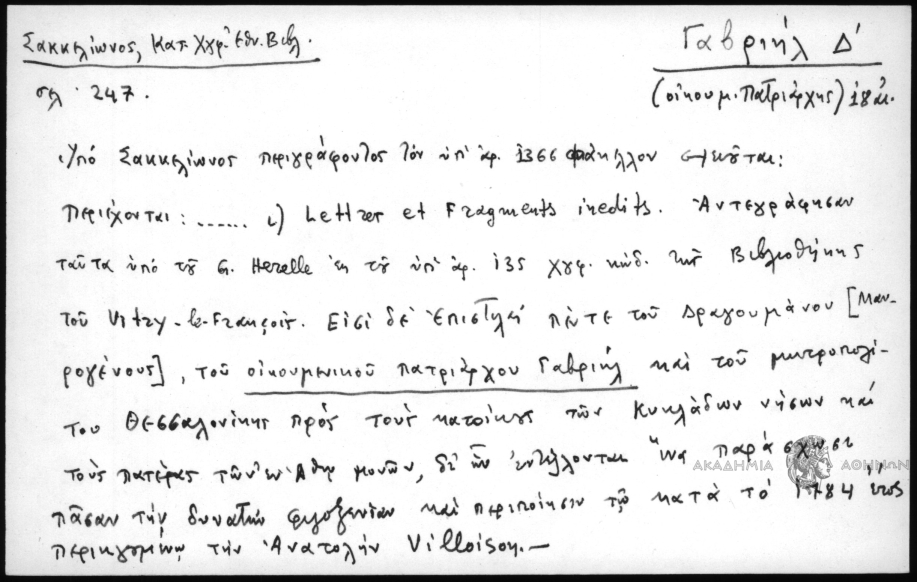 Σακκελίωνος, Κατ. Χγρ. Ἐθν. Βιβλ.
σελ. 247.
Γαβριήλ Δ'
(οἰκουμ. Πατριάρχης) 18 αἰ.
Ὑπό Σακκελίωνος περιγράφοντος τόν ὑπ' ἀρ. 1366 φάκελλον σημειοῦται:
Περιέχονται: ...... ι) Lettres et Fragments inedits. Ἀντεγράφησαν
ταῦτα ὑπό τοῦ G. Herelle ἐκ τοῦ ὑπ' ἀρ. 135 χγφ. κώδ. τῆς Βιβλιοθήκης
τοῦ Vitry-le-François. Εἰσί δέ ἐπιστολαί πέντε τοῦ Δραγουμάνου [Μαυ-
ρογένους], τοῦ οἰκουμενικοῦ πατριάρχου Γαβριήλ καί τοῦ μητροπολί-
του Θεσσαλονίκης πρός τούς κατοίκους τῶν Κυκλάδων νήσων καί
τούς πατέρας τῶν ἐν Ἄθῳ μονῶν, δι' ὧν ἐντέλλονται ἵνα παράσχωσι
πᾶσαν τήν δυνατήν φιλοξενίαν καί περιποίησιν τῷ κατά τό 1784 ἔτος
περιηγουμένῳ τήν Ἀνατολήν Villoison.—
ΑΚΑΔΗΜΙΑ ΑΘΗΝΩΝ